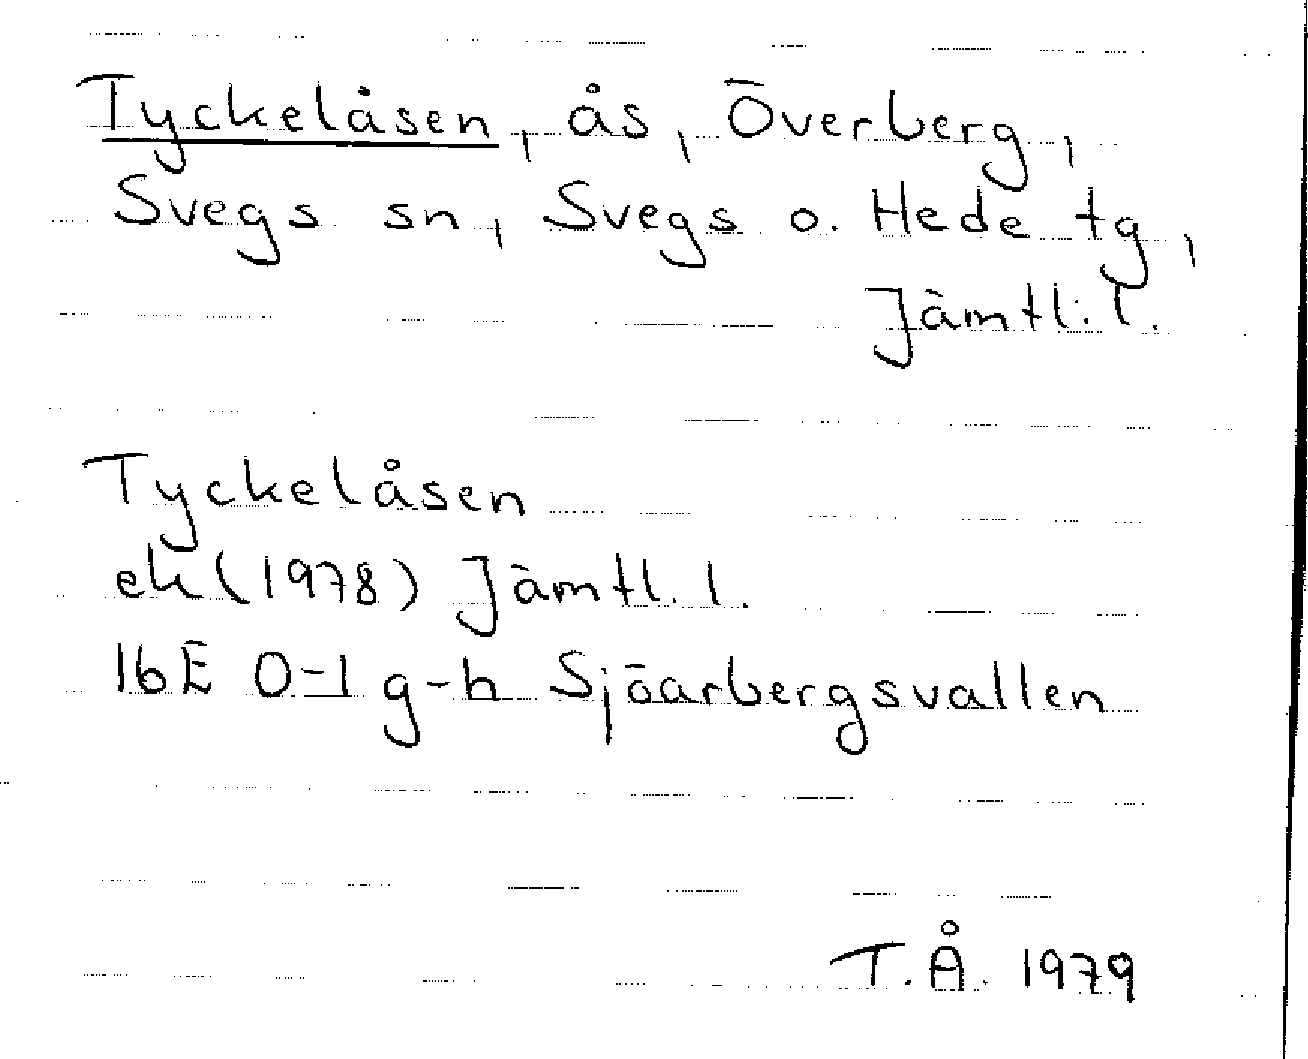 Tyckelåsen, ås, Överberg,
Svegs sn, Svegs o. Hede tg,
Jämtl. l.
Tyckelåsen
ek (1978) Jämtl. l.
16E 0-1 g-h Sjöarbergsvallen
T.Å. 1979